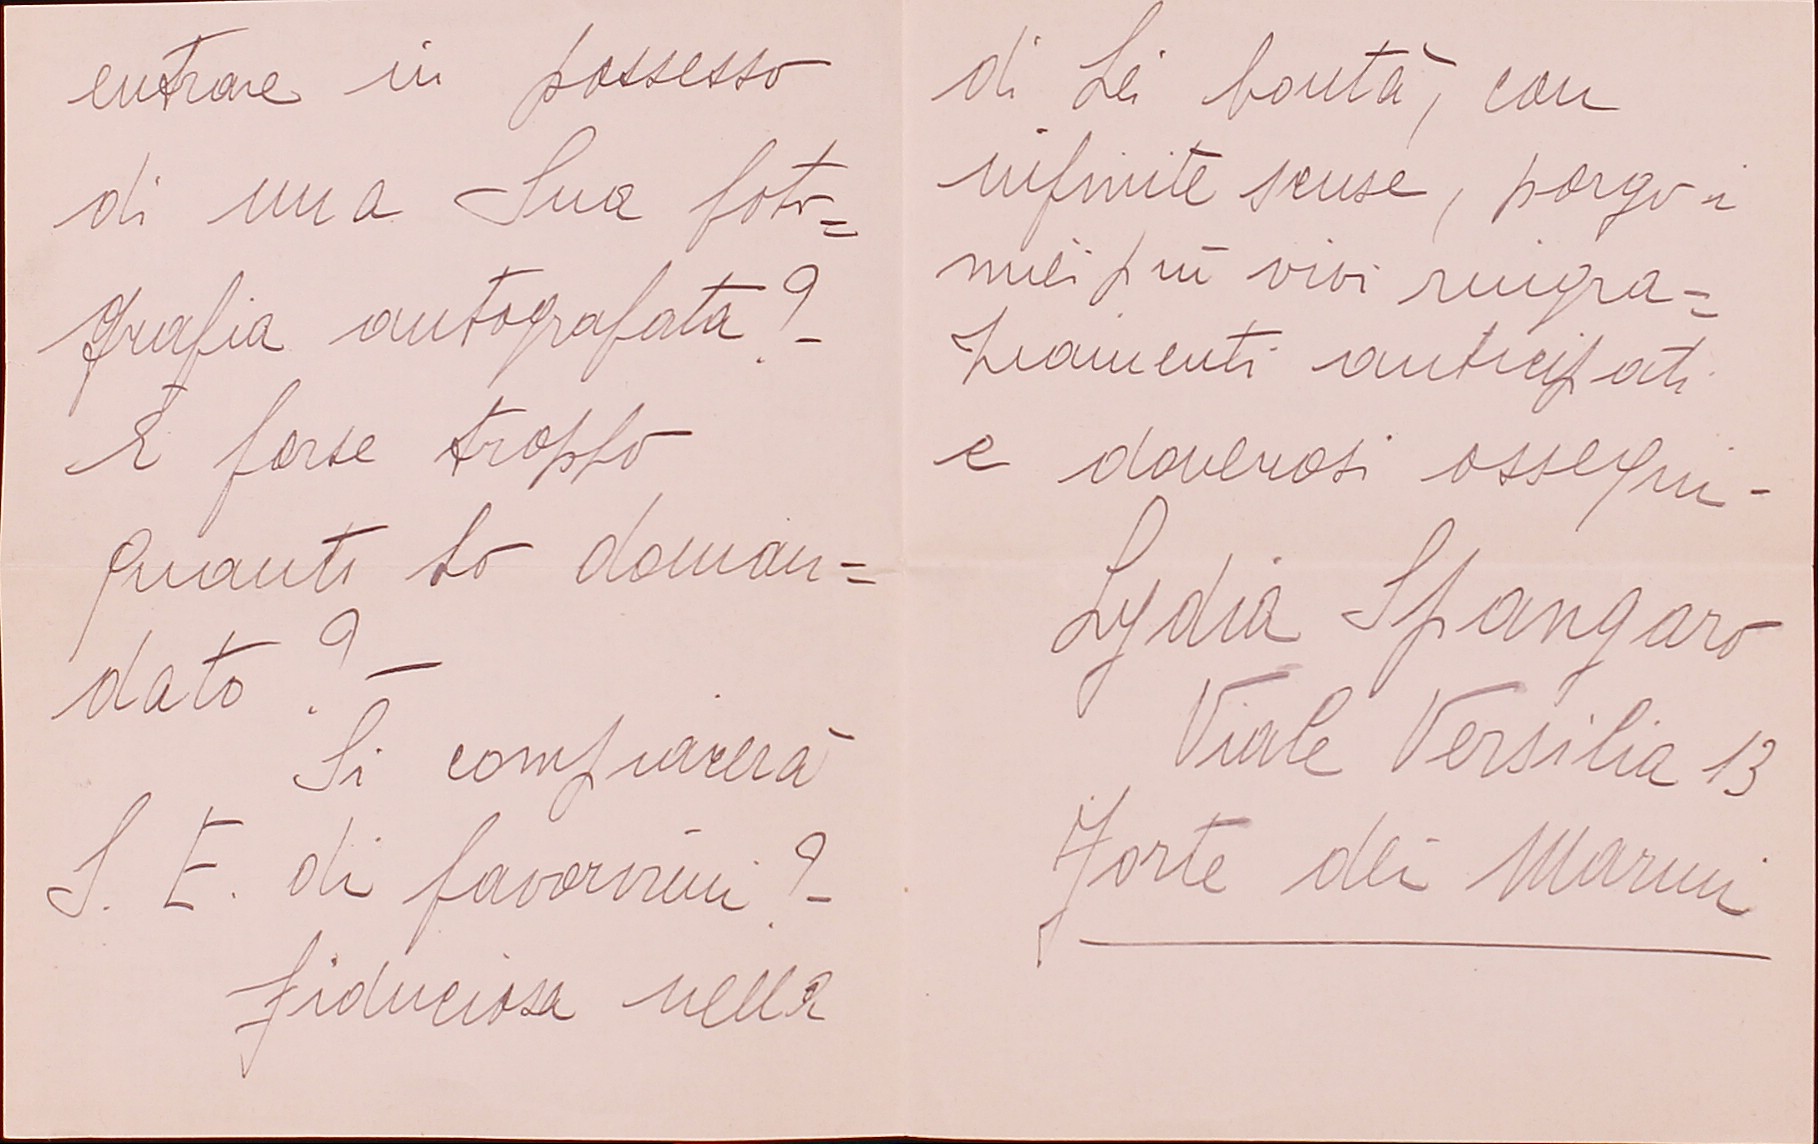 entrare in possesso
di una Sua foto=
grafia autografata?-
È forse troppo
quanti ho doman=
dato?-
Si compiacerà
S. E. di favorirmi?-
fiduciosa nella
di Lei bontà, con
infinite scuse, porgo i
miei più vivi ringra=
ziamenti anticipati
e doverosi ossequi-
Lydia Spangaro
Viale Versilia 13
Forte dei Marmi